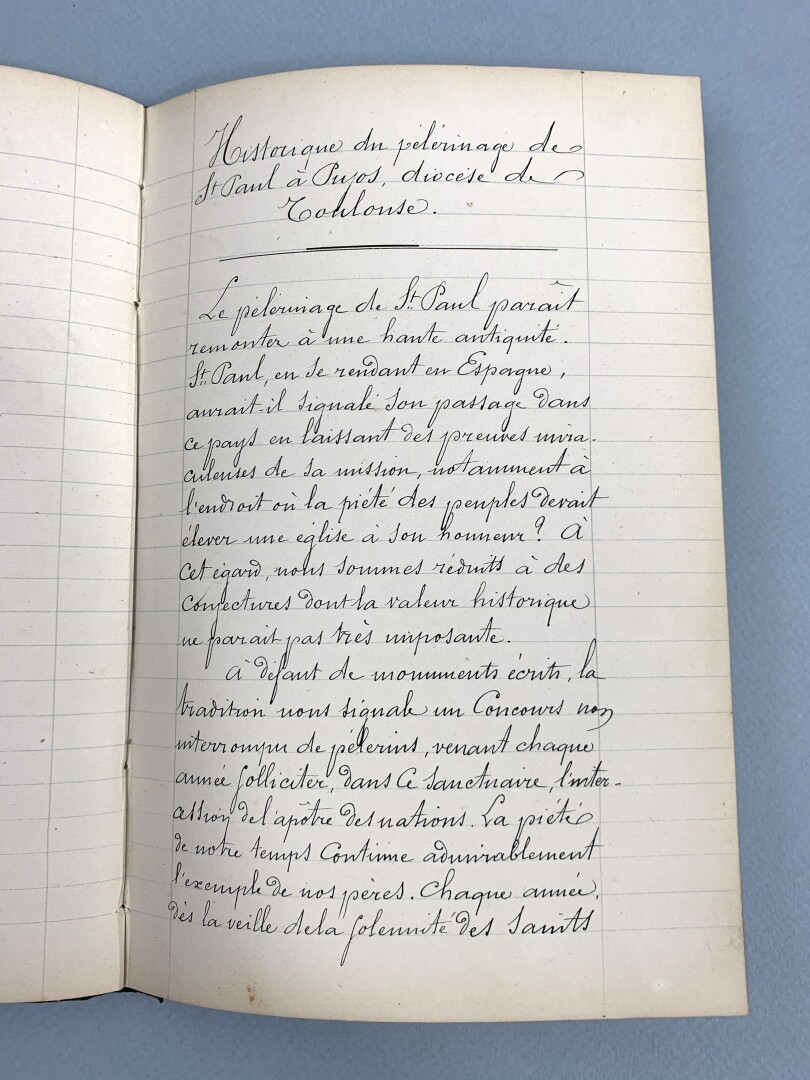 Historique du pélérinage de
St Paul à Pujos, diocèse de
Toulouse.
Le pélérinage de St. Paul paraît
remonter à une haute antiquité.
St. Paul, en se rendant en Espagne,
aurait-il signalé son passage dans
ce pays en laissant des preuves mira-
culeuses de sa mission, notamment à
l'endroit où la piété des peuples devait
élever une église à son honneur? À
cet égard, nous sommes réduits à des
conjectures dont la valeur historique
ne parait pas très imposante.
À défaut de monuments écrits, la
tradition nous signale un Concours non
interrompu de pélerins, venant chaque
année solliciter, dans ce sanctuaire, l'inter-
cession de l'apôtre des nations. La piété
de notre temps continue admirablement
l'exemple de nos pères. Chaque année,
dès la veille de la solennité des Saints